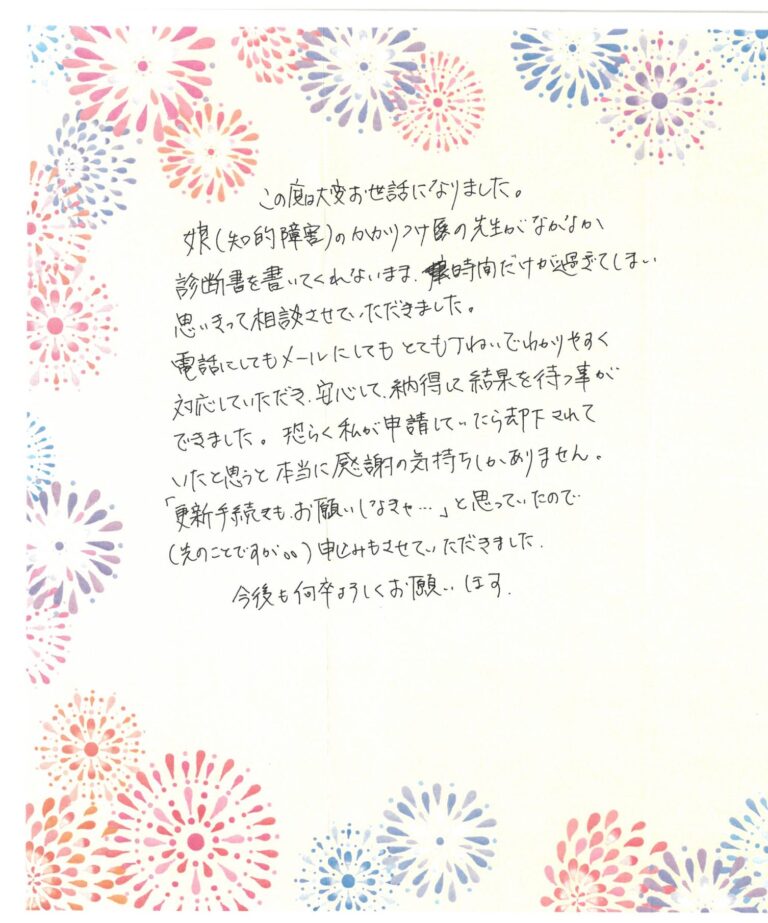 この度は大変お世話になりました。
娘(知的障害)のかかりつけ医の先生がなかなか
診断書を書いてくれないまま、時間だけが過ぎてしまい
思いきって相談させていただきました。
電話にしてもメールにしてもとても丁ねいでわかりやすく
対応していただき、安心して、納得して結果を待つ事が
できました。恐らく私が申請していたら却下されて
いたと思うと本当に感謝の気持ちしかありません。
「更新手続きも、お願いしなきゃ…」と思っていたので
(先のことですが。。)申込みもさせていただきました。
今後も何卒よろしくお願いします。